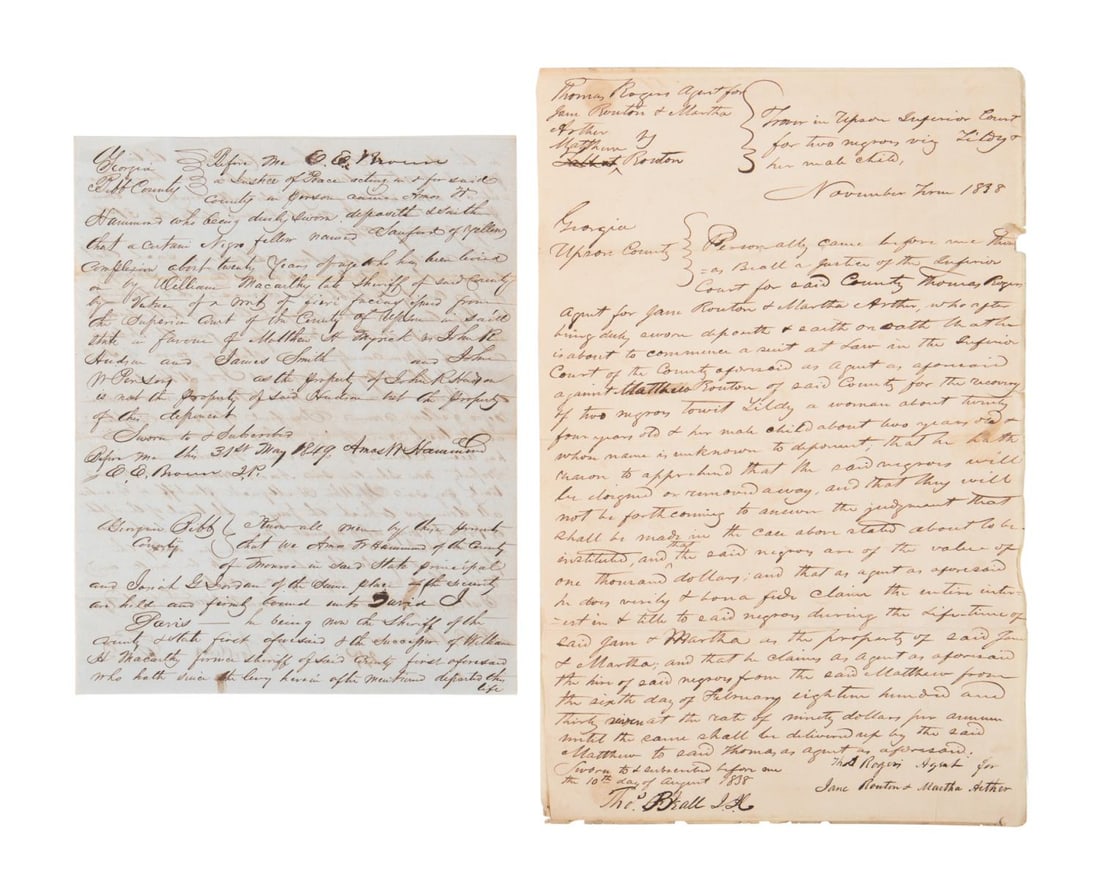 Georgia
Bibb County
Before Me E. E. Brown
a Justice of Peace acting in & for said
County in person came Amos W
Hammond who being duly sworn deposeth & saith
that a certain Negro fellow named Sanford of yellow
complexion about twenty years of age who has been levied
on by William Macarthy late Sheriff of said County
by virtue of a writ of fieri facias issued from
the Superior Court of the County of Upson in said
State in favour of Matthew H Myrick vs John R
Hudson and James Smith and John
W Persons as the property of John R Hudson
is not the property of said Hudson but the property
of this deponent
Sworn to & Subscribed
Before me this 31st May 1849 Amos W Hammond
E. E. Brown J.P.
Georgia Bibb
County
Know all men by these presents
that we Amos W Hammond of the County
of Monroe in said State principal
and Josiah G Jordan of the same place security
are held and firmly bound unto David J
Davis — he being now the Sheriff of the
County & State first aforesaid & the successor of William
H Macarthy former sheriff of said County first aforesaid
who hath since the levy herein after mentioned departed this
life
Thomas Rogers Agent for
Jane Routon & Martha
Arther
vs
Matthew Routon
Trover in Upson Inferior Court
for two negros viz Tildy &
her male child,
November Term 1838
Georgia
Upson County
Personally came before me Thom
=as Beall a Justice of the Inferior
Court for said County Thomas Rogers
Agent for Jane Routon & Martha Arther, who after
being duly sworn deposeth & saith on oath that he
is about to commence a suit at Law in the Inferior
Court of the County aforesaid as Agent as aforesaid
against Matthew Routon of said County for the recovery
of two negros towit Tildy a woman about twenty
four years old & her male child about two years old &
whose name is unknown to deponent, that he hath
reason to apprehend that the said negros will
be eloigned or removed away, and that they will
not be forthcoming to answer the judgment that
shall be made in the case above stated about to be
instituted, and that the said negros are of the value of
one thousand dollars; and that as agent as aforesaid
he does verily & bona fide claim the entire inter-
est in & title to said negros during the lifetime of
said Jane & Martha as the property of said Jane
& Martha; and that he claims as Agent as aforesaid
the hire of said negros from the said Matthew from
the sixth day of February eighteen hundred and
thirty seven at the rate of ninety dollars per annum
until the same shall be delivered up by the said
Matthew to said Thomas as agent as aforesaid.
Sworn to & subscribed before me
the 10th day of August 1838
Thos Rogers Agent for
Jane Routon & Martha Arther
Thos. Beall J.I.C.